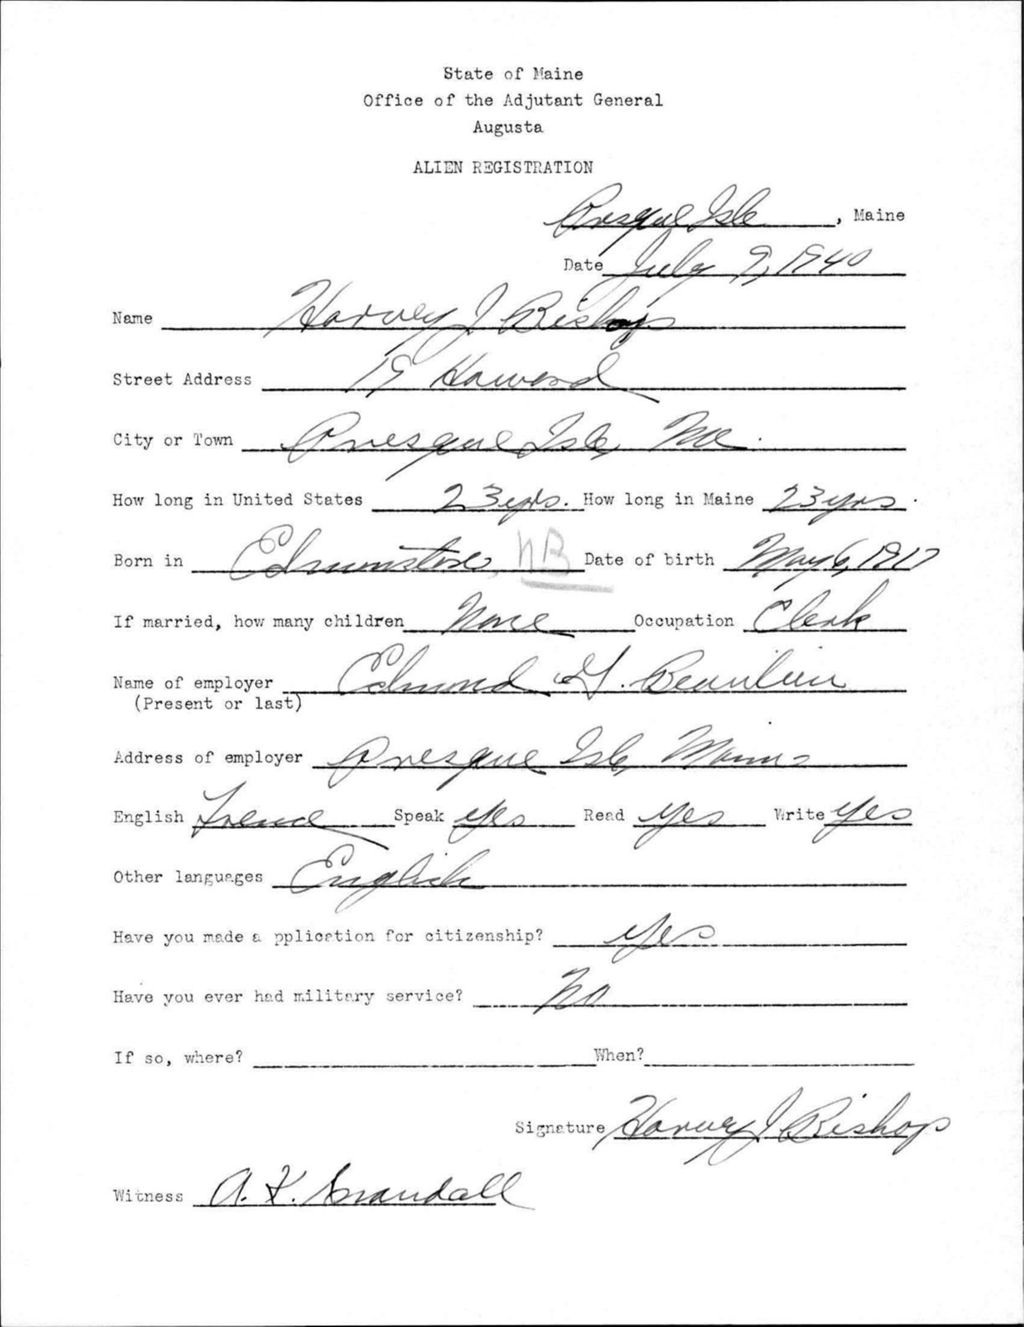 State of Maine
Office of the Adjutant General
Augusta
ALIEN REGISTRATION
Presque Isle, Maine
Date July 9, 1940
Name Harvey J Bishop
Street Address 19 Howard
City or Town Presque Isle, Me.
How long in United States 23 yrs. How long in Maine 23 yrs.
Born in Edmunston, NB Date of birth May 6, 1917
If married, how many children None Occupation Clerk
Name of employer Edmond G. Beaulieu
(Present or last)
Address of employer Presque Isle, Maine
English French Speak yes Read yes Write yes
Other languages English
Have you made a pplication for citizenship? yes
Have you ever had military service? No
If so, where? When?
Signature Harvey J Bishop
Witness A. K. Crandall